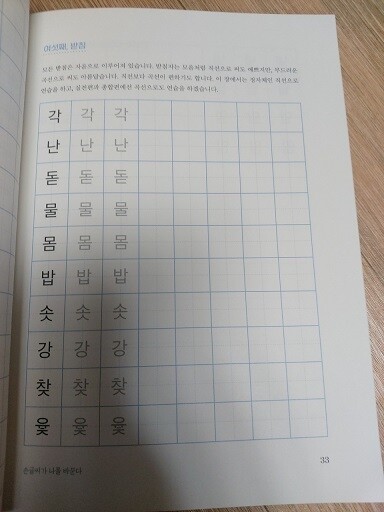 여섯째, 받침
모든 받침은 자음으로 이루어져 있습니다. 받침자는 모음처럼 직선으로 써도 예쁘지만, 부드러운
곡선으로 써도 아름답습니다. 직선보다 곡선이 편하기도 합니다. 이 장에서는 정자체인 직선으로
연습을 하고, 실전편과 종합편에선 곡선으로도 연습을 하겠습니다.
각 각 각
난 난 난
돋 돋 돋
물 물 물
몸 몸 몸
밥 밥 밥
솟 솟 솟
강 강 강
찾 찾 찾
윷 윷 윷
손글씨가 나를 바꾼다
33